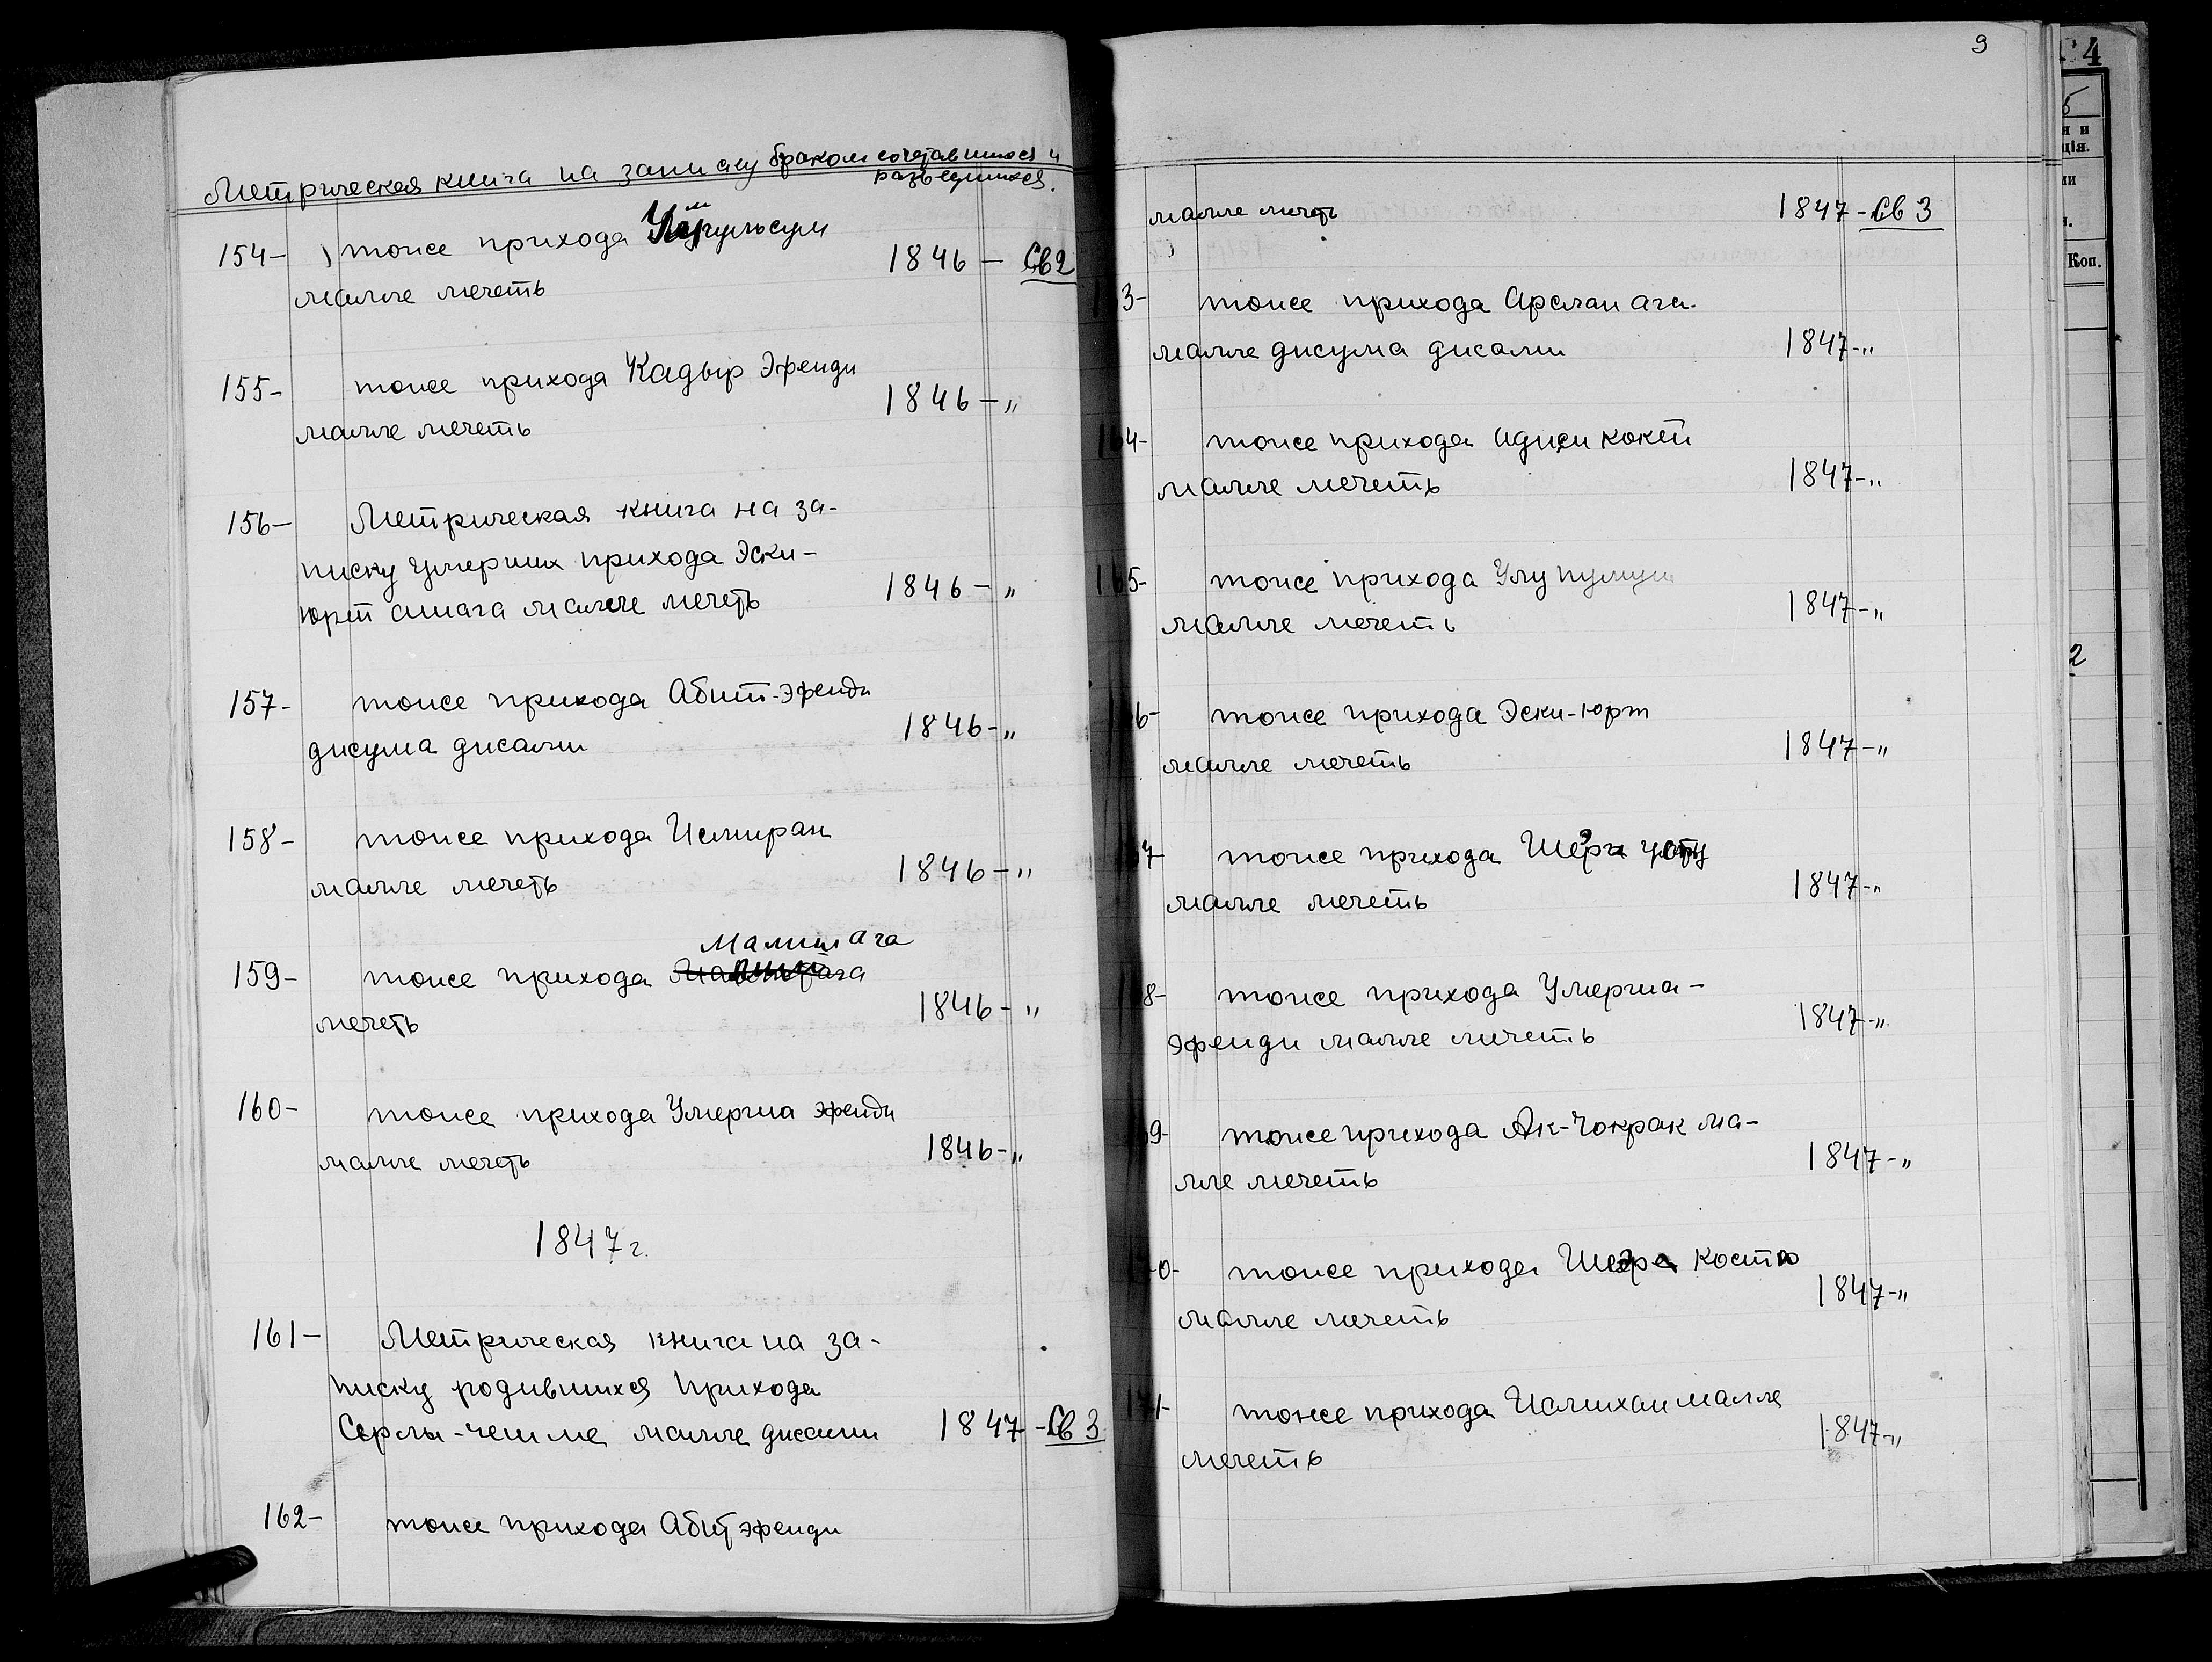 Метрическая книга на записку браком сочетавшихся и
разведшихся.
154- тоже прихода Умугульсум
малле мечеть 1846 - Св 2
155- тоже прихода Кадыр Эфенди
малле мечеть 1846 - "
156- Метрическая книга на за-
писку умерших прихода Эски-
юрт ашага малле мечеть 1846 - "
157- тоже прихода Абит-эфенди
джума джами 1846 - "
158- тоже прихода
малле мечеть 1846 - "
Малиш ага
159- тоже прихода
мечеть 1846 - "
160- тоже прихода Умерша эфенди
малле мечеть 1846 - "
1847 г.
161- Метрическая книга на за-
писку родившихся прихода
Сырлы-чешме малле джами 1847 - Св 3
162- тоже прихода Абит эфенди
9
малле мечеть 1847 - Св 3
3- тоже прихода Арслан ага
малле джума джами 1847 - "
164- тоже прихода Аджи кокей
малле мечеть 1847 - "
165- тоже прихода Улу
малле мечеть 1847 - "
6- тоже прихода Эски-юрт
малле мечеть 1847 - "
7- тоже прихода
малле мечеть 1847 - "
8- тоже прихода Умерша-
эфенди малле мечеть 1847 - "
9- тоже прихода Ак-Чокрак ма-
лле мечеть 1847 - "
0- тоже прихода
малле мечеть 1847 - "
1- тоже прихода Исмихан малле
мечеть 1847 - "
4
Коп.
2